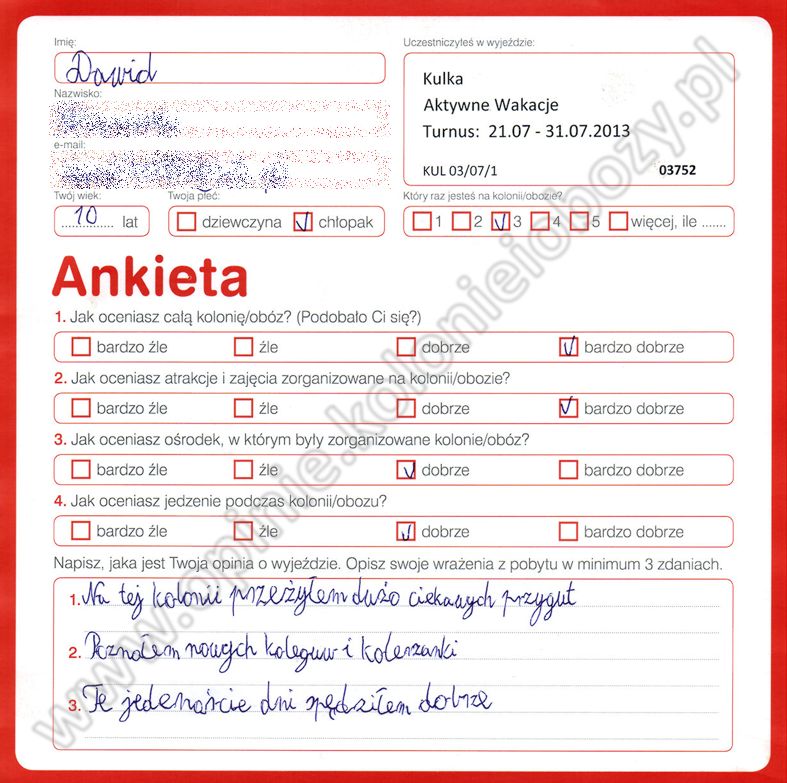 Imię:
Uczestniczyłeś w wyjeździe:
Dawid
Kulka
Nazwisko:
Aktywne Wakacje
Turnus: 21.07 - 31.07.2013
e-mail:
KUL 03/07/1 03752
Twój wiek: Twoja płeć: Który raz jesteś na kolonii/obozie?
10 lat dziewczyna chłopak 1 2 3 4 5 więcej, ile .......
Ankieta
1. Jak oceniasz całą kolonię/obóz? (Podobało Ci się?)
bardzo źle źle dobrze bardzo dobrze
2. Jak oceniasz atrakcje i zajęcia zorganizowane na kolonii/obozie?
bardzo źle źle dobrze bardzo dobrze
3. Jak oceniasz ośrodek, w którym były zorganizowane kolonie/obóz?
bardzo źle źle dobrze bardzo dobrze
4. Jak oceniasz jedzenie podczas kolonii/obozu?
bardzo źle źle dobrze bardzo dobrze
Napisz, jaka jest Twoja opinia o wyjeździe. Opisz swoje wrażenia z pobytu w minimum 3 zdaniach.
1. Na tej kolonii przeżyłem dużo ciekawych przygut
2. Poznałem nowych koleguw i kolerzanki
3. Te jedenaście dni spędziłem dobrze
www.opinie.kolonieiobozy.pl